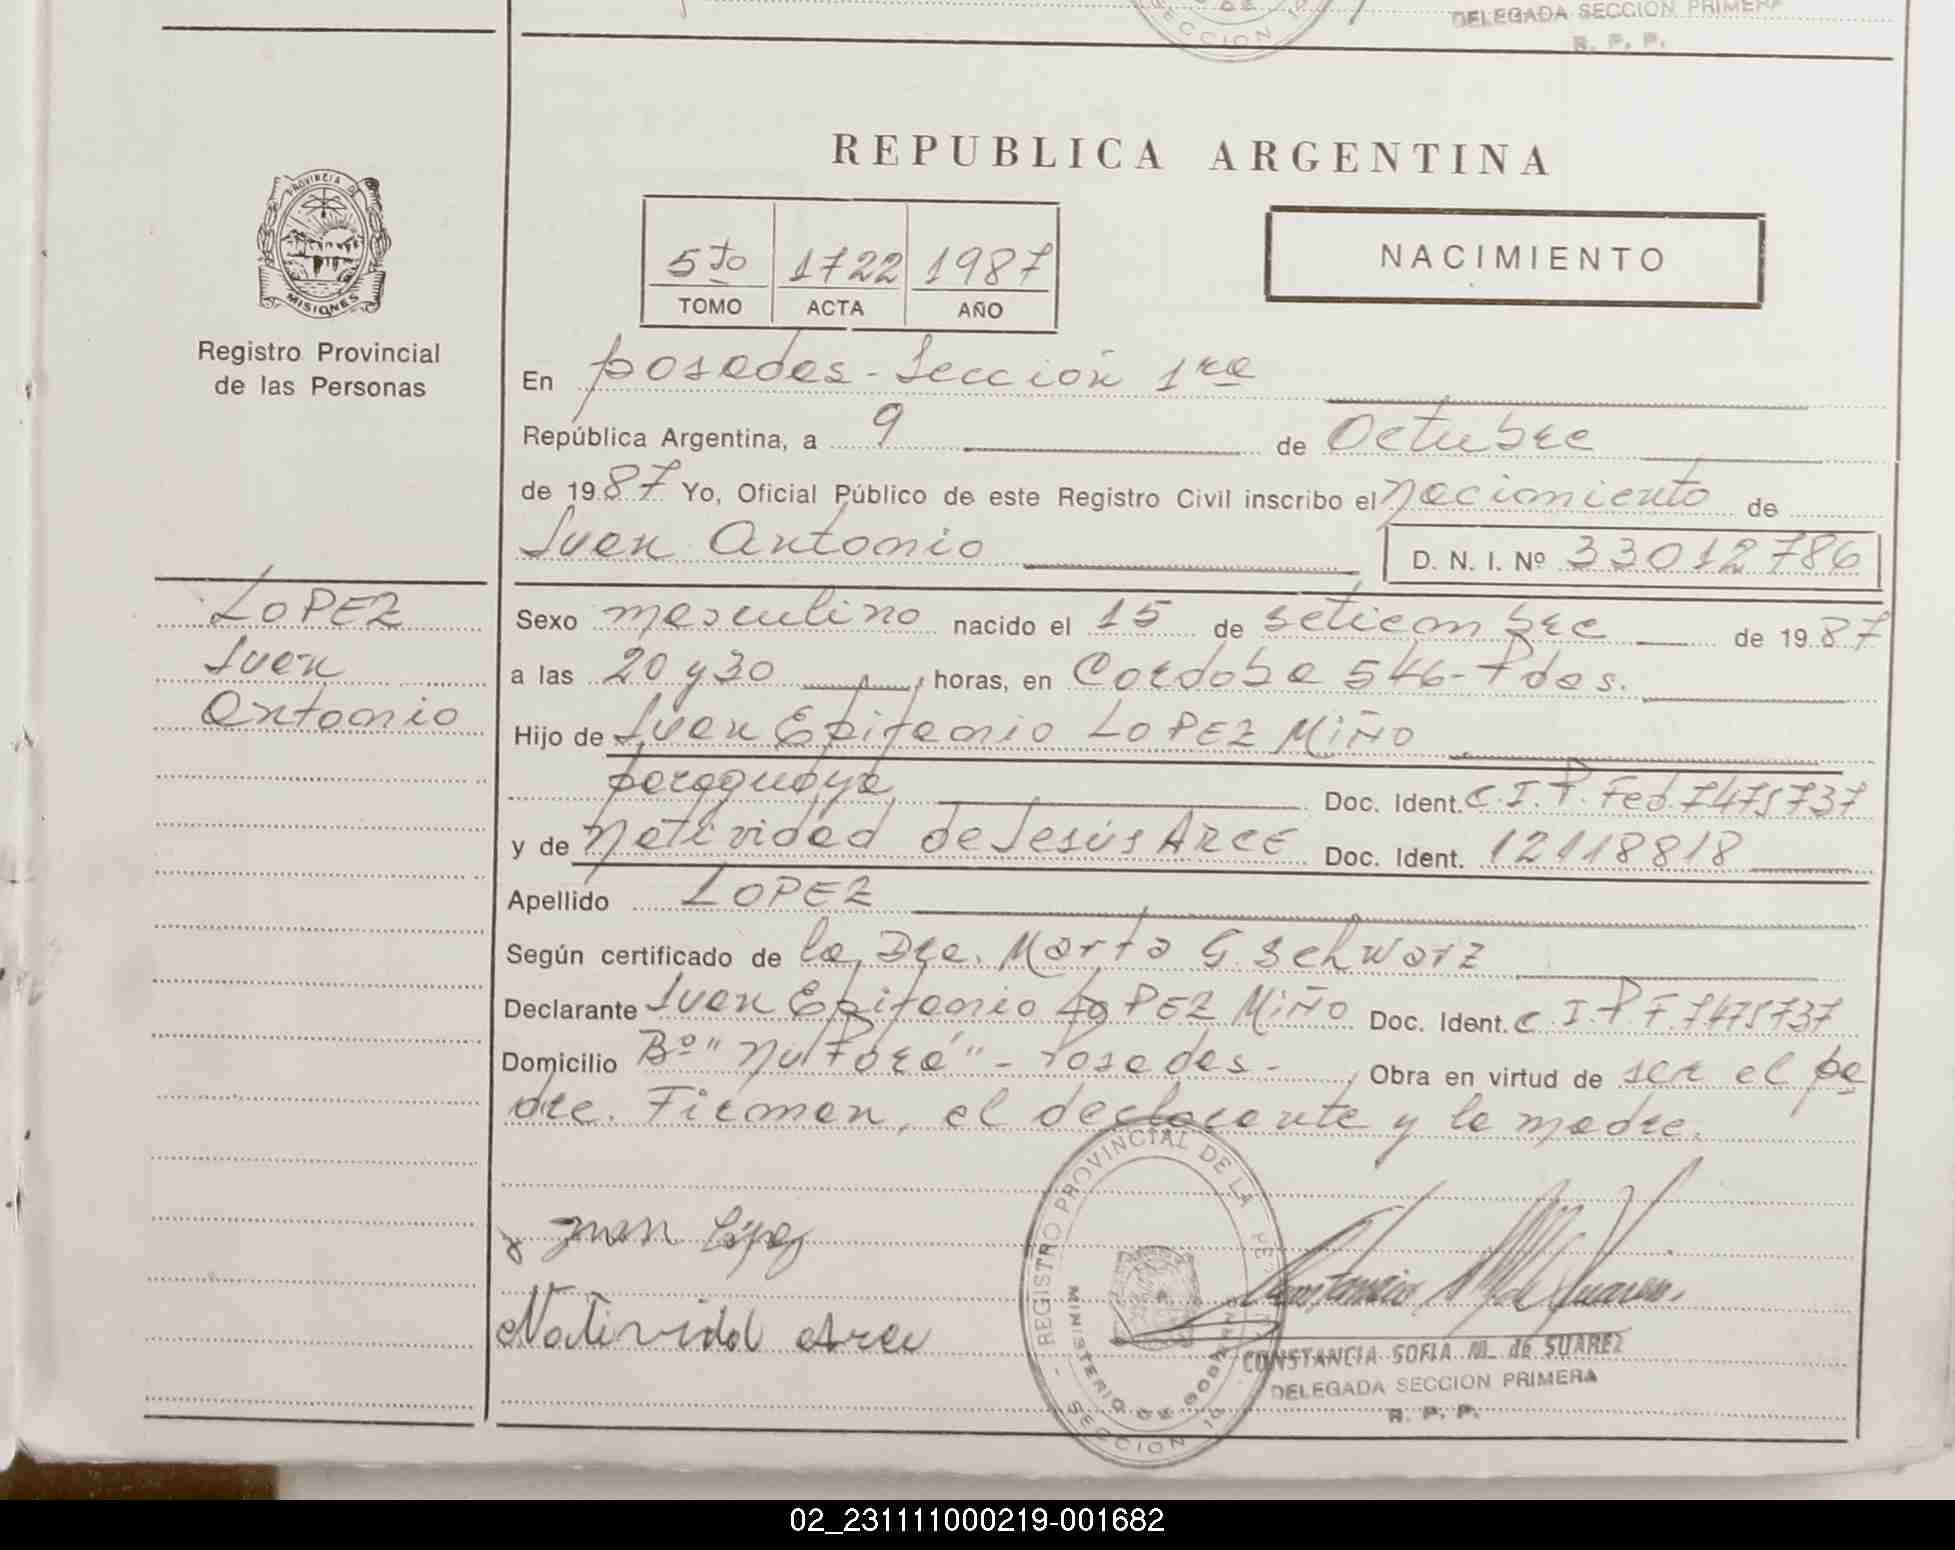 DELEGADA SECCION PRIMERA
R. P. P.
SECCION 1ª
REPUBLICA ARGENTINA
PROVINCIA DE
MISIONES
Registro Provincial
de las Personas
5to 1722 1987
TOMO ACTA AÑO
NACIMIENTO
En Posadas - Sección 1ra
República Argentina, a 9 de Octubre
de 1987 Yo, Oficial Público de este Registro Civil inscribo el nacimiento de
Juan Antonio D. N. I. Nº 33012786
LOPEZ
Juan
Antonio
Sexo masculino nacido el 15 de setiembre de 1987
a las 20 y 30 horas, en Cordoba 546 - Pdas.
Hijo de Juan Epifanio LOPEZ MIÑO
paraguaya Doc. Ident. C.I.P. Fed. 7475737
y de Natividad de Jesús ARCE Doc. Ident. 12118818
Apellido LOPEZ
Según certificado de la Dra. Marta G. Schwarz
Declarante Juan Epifanio LOPEZ MIÑO Doc. Ident. C.I.P.F. 7475737
Domicilio Bº "Ñu Porá" - Posadas - Obra en virtud de ser el pa
dre. Firman, el declarante y la madre.
Juan López
Natividad Arce
REGISTRO PROVINCIAL DE LA PE
MINISTERIO DE GOBIERNO
SECCION 1ª
CONSTANCIA SOFIA M. de SUAREZ
DELEGADA SECCION PRIMERA
R. P. P.
02_231111000219-001682